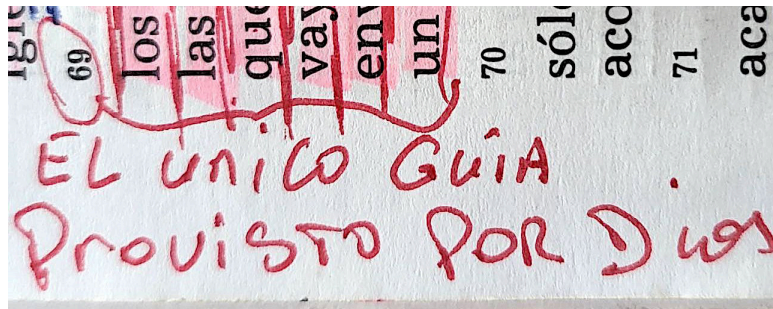 69
los
las
que
vay
env
un
70
sól
aco
71
aca
EL UNICO GUÍA
PROVISTO POR Dios